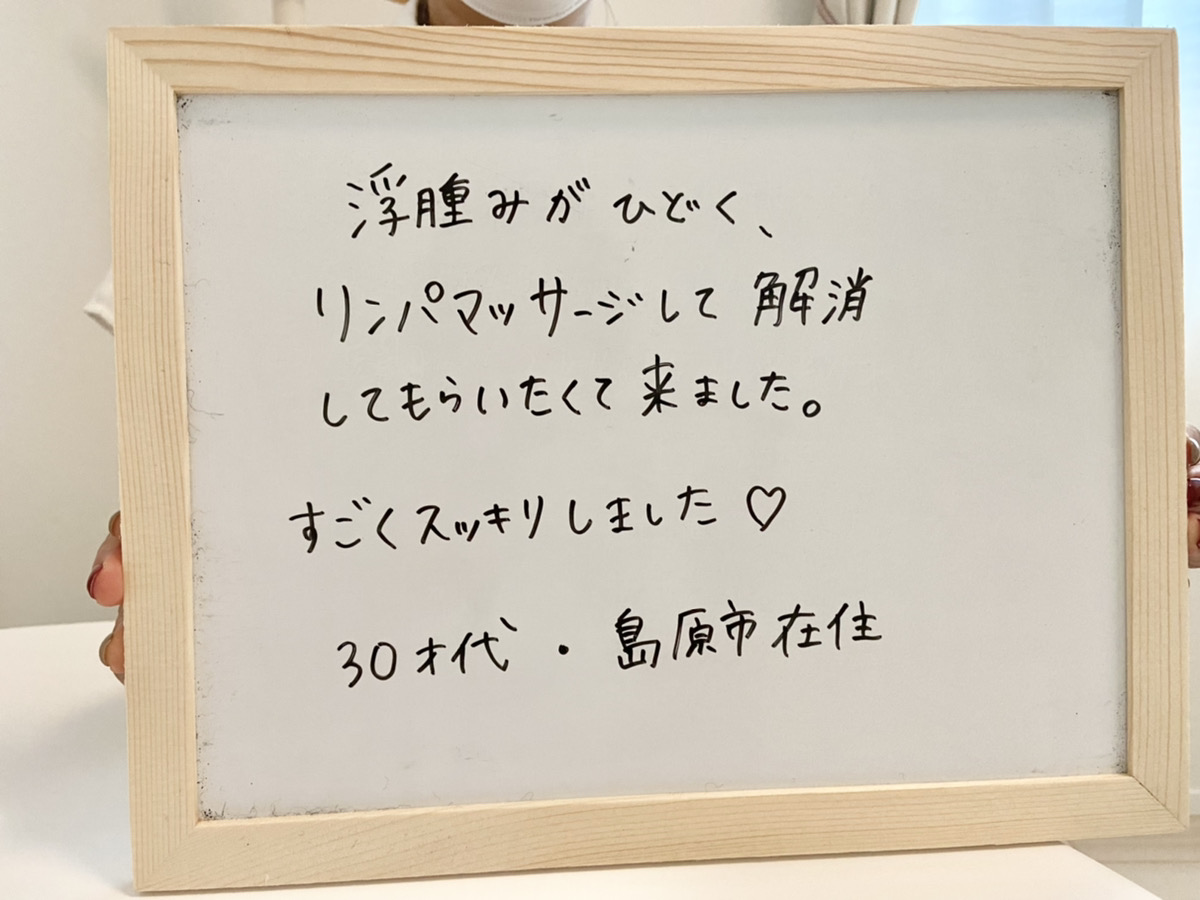 浮腫みがひどく、
リンパマッサージして解消
してもらいたくて来ました。
すごくスッキリしました♡
30才代・島原市在住